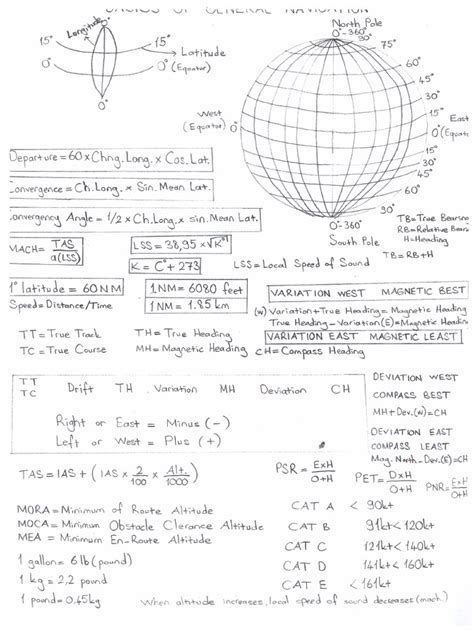 BASICS OF GENERAL NAVIGATION
North Pole
0°-360°
90°
75°
60°
45°
30°
15°
East
0° (Equator)
15°
30°
45°
60°
90°
0°-360°
South Pole
West
(Equator) 0°
Longitude
0°
15° 15°
Latitude
0° 0° (Equator)
0°
TB=True Bearing
RB=Relative Bearing
H=Heading
TB=RB+H
Departure=60xChng.Long.x Cos.Lat.
Convergence=Ch.Long.x Sin.Mean Lat.
Convergency Angle=1/2xCh.Long.x sin.Mean Lat.
MACH= TAS / a(LSS)
LSS=38,95x√K°
K=C°+273
LSS=Local Speed of Sound
1° latitude=60NM
1NM=6080 feet
Speed=Distance/Time
1NM=1.85km
VARIATION WEST MAGNETIC BEST
(W) Variation+True Heading=Magnetic Heading
True Heading-Variation(E)=Magnetic Heading
VARIATION EAST MAGNETIC LEAST
TT=True Track TH=True Heading
TC=True Course MH=Magnetic Heading CH=Compass Heading
TT
TC Drift TH Variation MH Deviation CH
Right or East = Minus (-)
Left or West = Plus (+)
DEVIATION WEST
COMPASS BEST
MH+Dev.(W)=CH
DEVIATION EAST
COMPASS LEAST
Mag. North-Dev.(E)=CH
TAS=IAS+(IAS x 2/100 x Alt./1000)
PSR= ExH / O+H
PET= DxH / O+H
PNR= ExH / O+H
MORA=Minimum of Route Altitude
MOCA=Minimum Obstacle Clerance Altitude
MEA=Minimum En-Route Altitude
1 gallon=6lb(pound)
1kg=2,2 pound
1 pound=0.45kg
CAT A < 90kt
CAT B 91kt<120kt
CAT C 121kt<140kt
CAT D 141kt<160kt
CAT E <161kt
When altitude increases, local speed of sound decreases(mach)